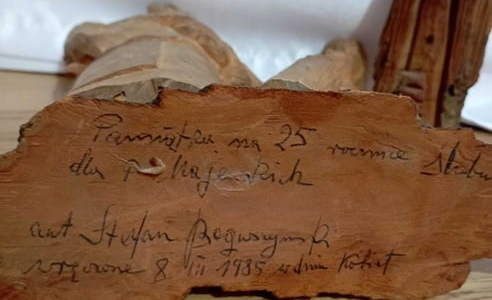 Pamiątka na 25 rocznice ślubu
dla P. Majewskich
aut Stefan Boguszyński
wręczone 8 III 1985 w dniu Kobiet